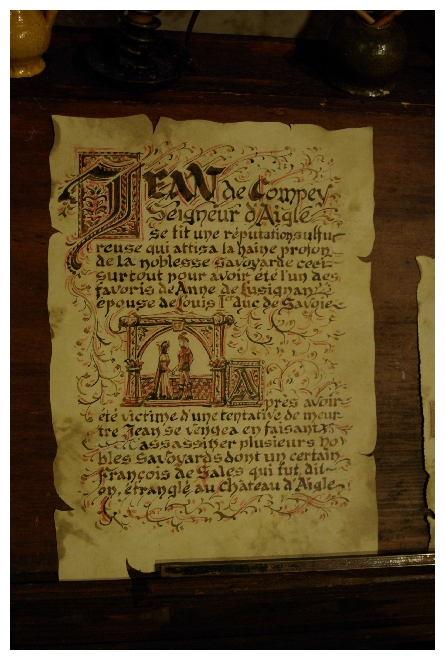 JEAN de Compey
Seigneur d'Aigle
se fit une réputation sulfu-
reuse qui attisa la haine profon-
de la noblesse savoyarde ceci
surtout pour avoir été l'un des
favoris de Anne de Lusignan
épouse de Louis Ier duc de Savoie
Après avoir
été victime d'une tentative de meur-
tre Jean se vengea en faisant
assassiner plusieurs no
bles savoyards dont un certain
François de Sales qui fut, dit-
on, étranglé au château d'Aigle